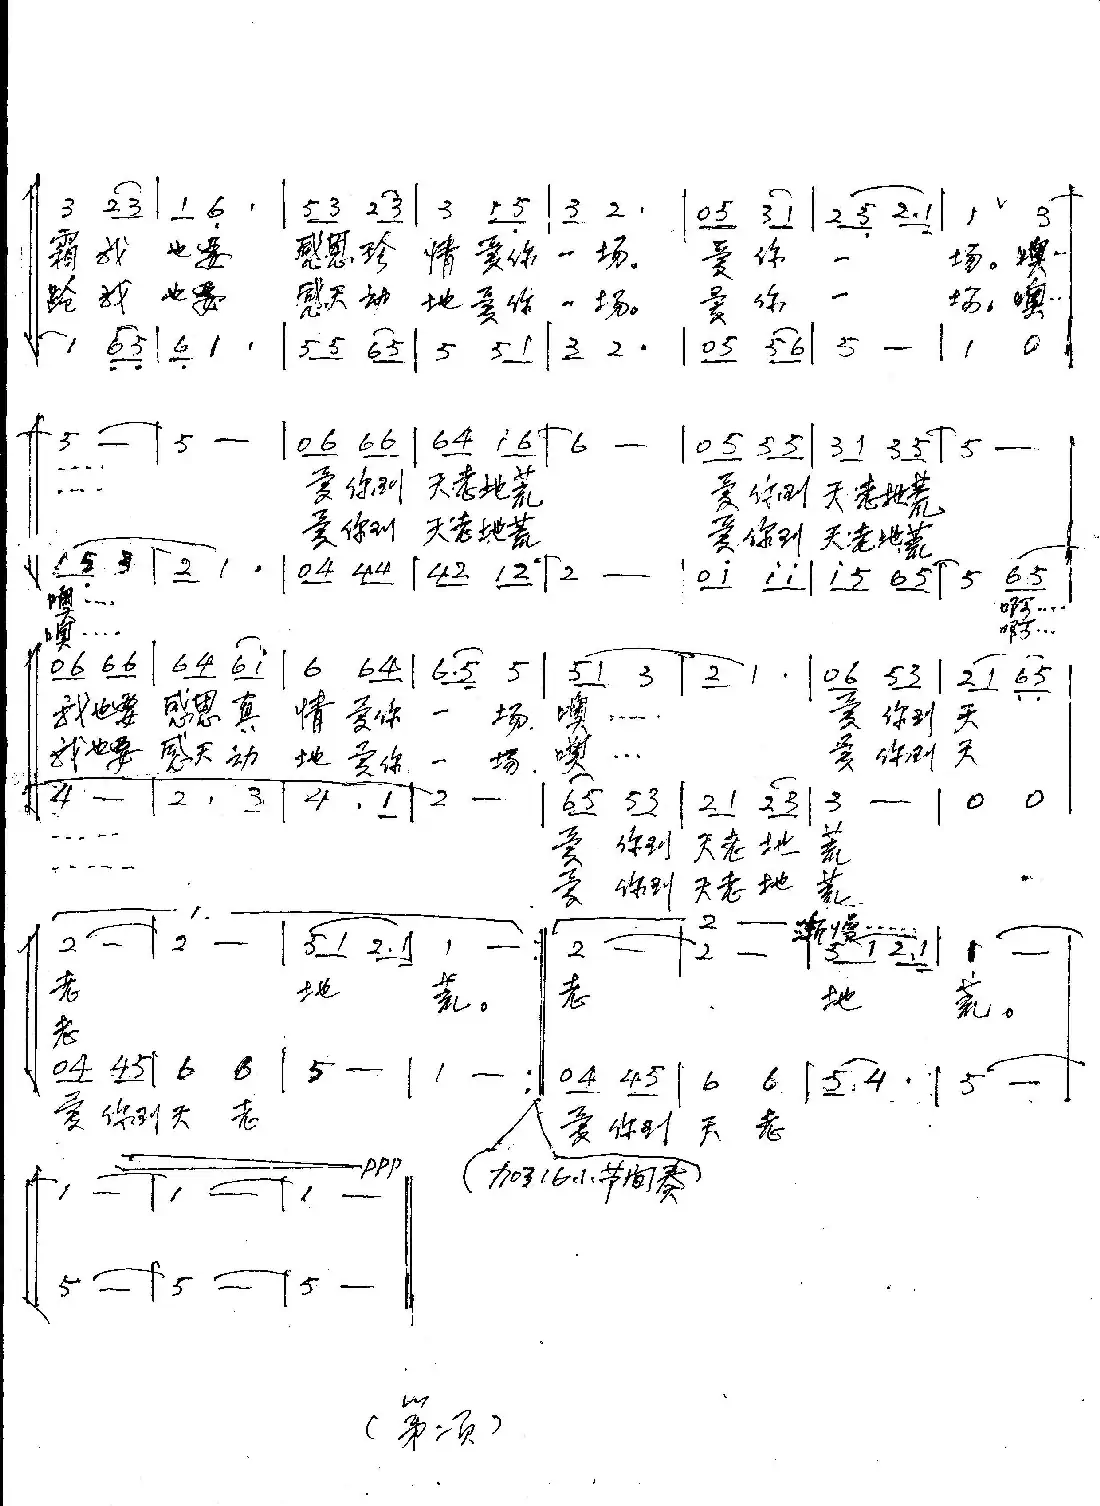 3 23 | 1 6 · | 53 23 | 3 1 5 | 3 2 · | 05 31 | 25 2·1 | 1 ˅ 3
霜 我 也要 感恩珍 情 爱你 一 场。 爱 你 一 场。噢…
我 也要 感天动 地 爱你 一 场。 爱 你 一 场。噢…
1 65 | 6 1 · | 55 65 | 5 51 | 3 2 · | 05 56 | 5 — | 1 0
3 — | 5 — | 06 66 | 64 i6 | 6 — | 05 35 | 31 35 | 5 —
爱你到 天老地荒 爱你到 天老地荒
爱你到 天老地荒 爱你到 天老地荒
153 | 2 1 · | 04 44 | 42 12 | 2 — | 0i ii | i5 65 | 5 65
噢…… 啊……
噢…… 啊…
06 66 | 64 6i | 6 64 | 6·5 5 | 51 3 | 2 1 · | 06 53 | 21 65
我也要 感恩真 情 爱你 一 场. 噢…… 爱 你到 天
我也要 感天动 地 爱你 一 场. 噢… 爱 你到 天
4 — | 2 · 3 | 4 · 1 | 2 — | 65 53 | 21 23 | 3 — | 0 0
爱 你到 天老 地 荒
爱 你到 天老 地 荒
1. 2 — 渐慢……
2 — | 2 — | 51 2·1 | 1 — :‖ 2 — | 2 — | 5 1 2·1 | 1 —
老 地 荒。 老 地 荒。
老
04 45 | 6 6 | 5 — | 1 — :‖ 04 45 | 6 6 | 5·4 · | 5 —
爱 你到 天 老 爱 你到 天 老
(加316小节间奏)
ppp
1 — | 1 — | 1 — ‖
5 — | 5 — | 5 — ‖
(第二页)